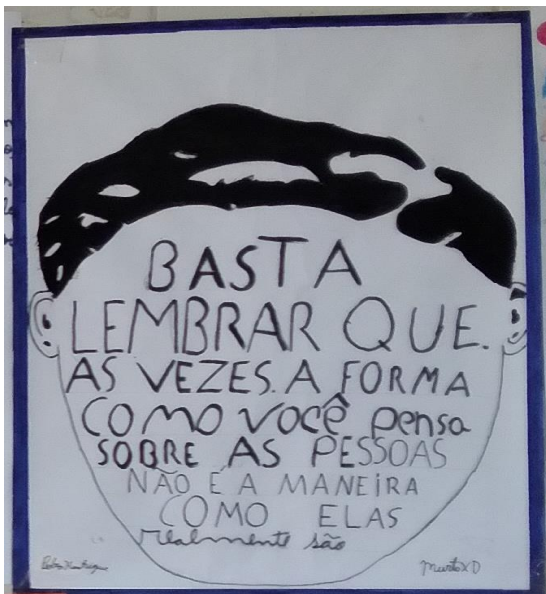 BASTA
LEMBRAR QUE.
AS VEZES. A FORMA
COMO VOCÊ pensa
SOBRE AS PESSOAS
NÃO É A MANEiRA
COMO ELAS
realmente são